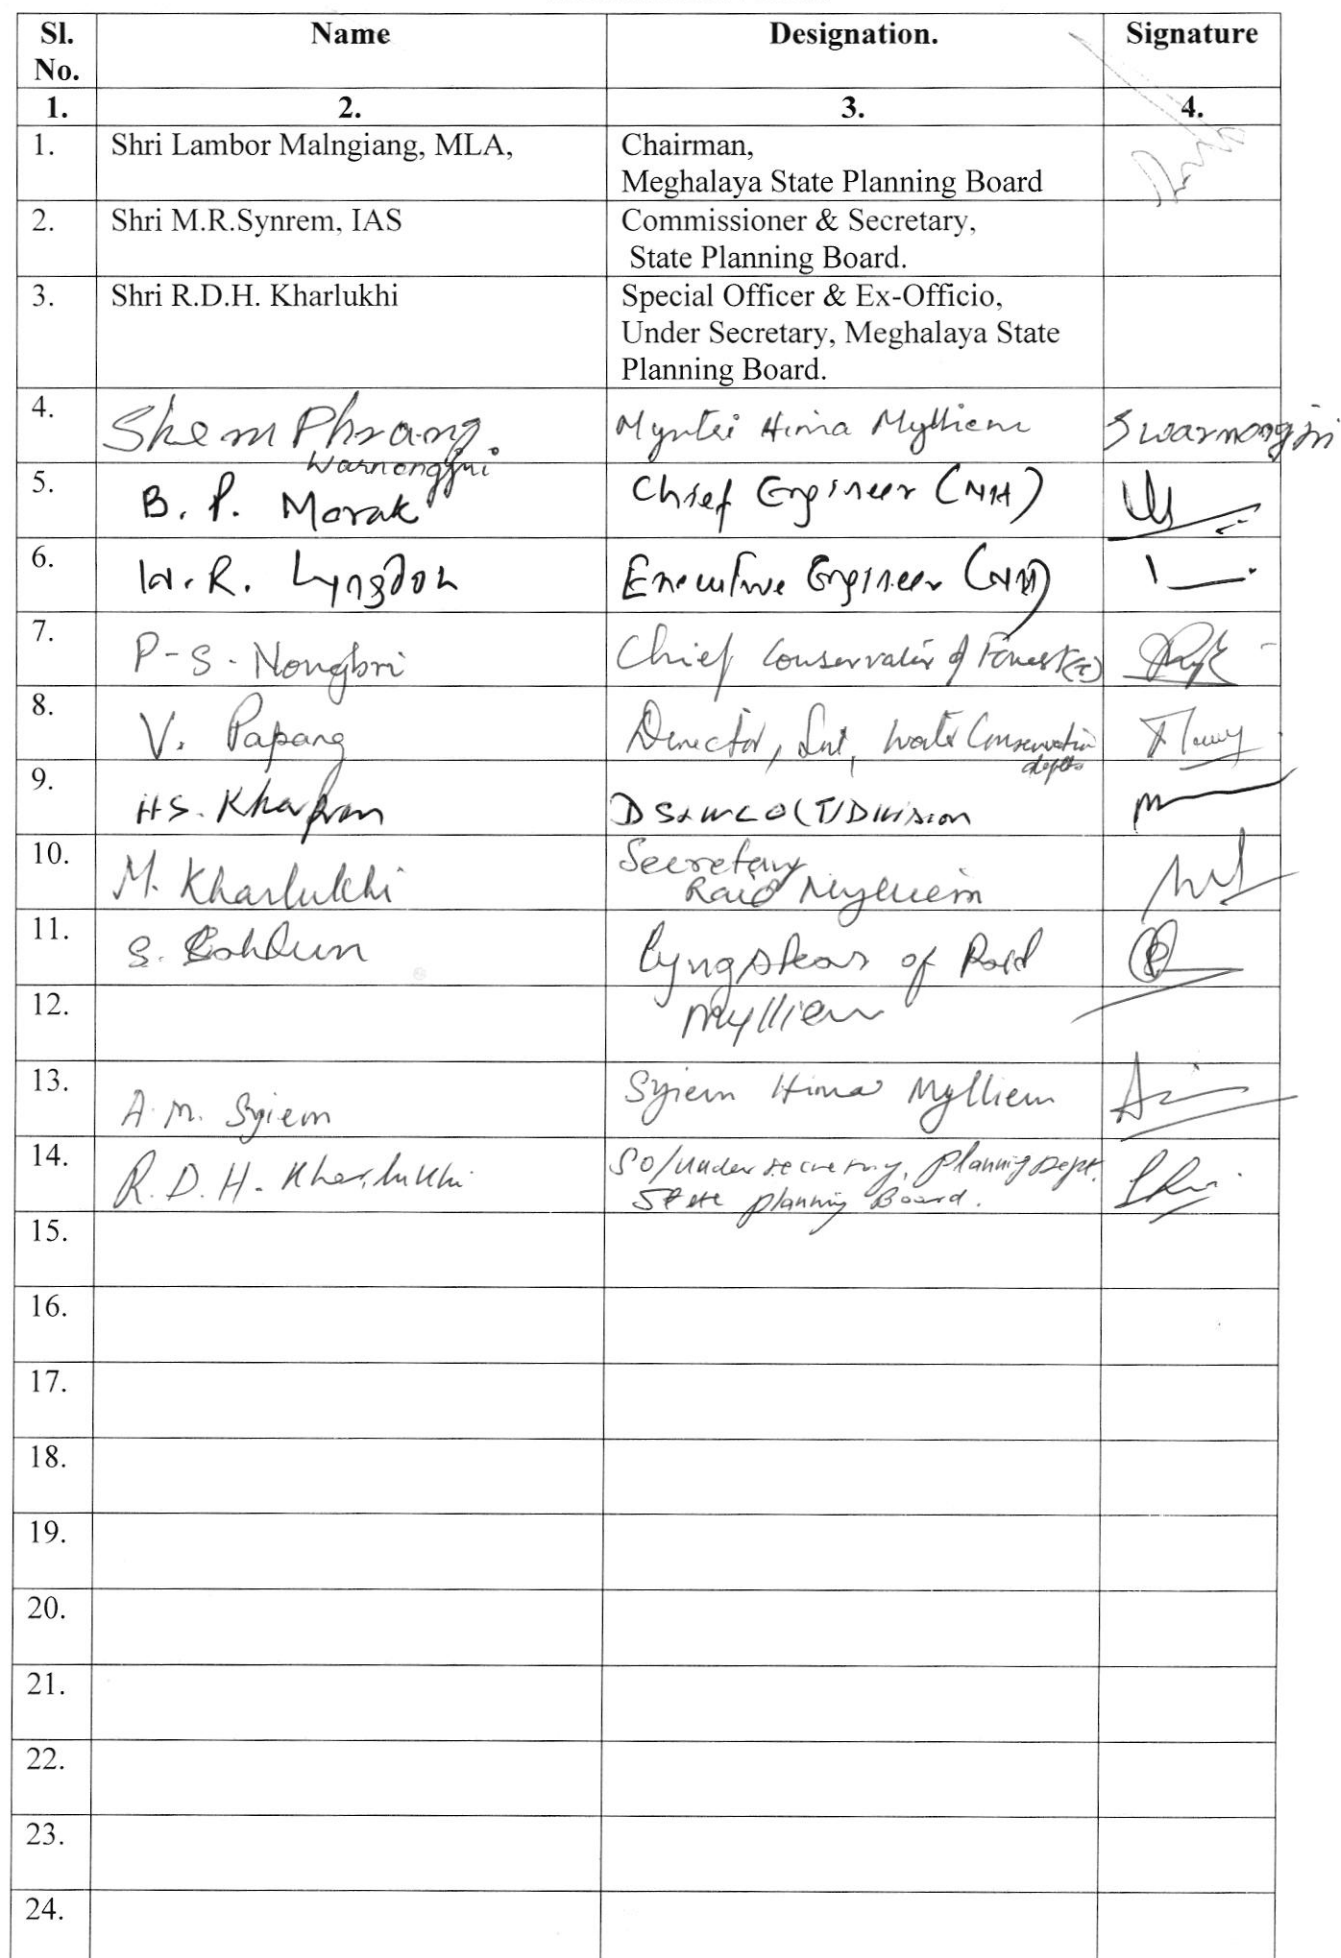 Sl. No. Name Designation. Signature
1. 2. 3. 4.
1. Shri Lambor Malngiang, MLA, Chairman,
Meghalaya State Planning Board
2. Shri M.R.Synrem, IAS Commissioner & Secretary,
State Planning Board.
3. Shri R.D.H. Kharlukhi Special Officer & Ex-Officio,
Under Secretary, Meghalaya State
Planning Board.
4. Shem Phrang Myntri Hima Mylliem Swarnongjri
Warnongjri
5. B. P. Marak Chief Engineer (NH)
6. W.R. Lyngdoh Executive Engineer (NH)
7. P-S. Nongbri Chief Conservator of Forest (T)
8. V. Papang Director, Soil, Water Conservation
deptt
9. HS. Kharpran DS&WCO (T) Division
10. M. Kharlukhi Secretary
Raid Mylliem
11. S. Lyngskor of Raid
12. Mylliem
13. A.M. Syiem Syiem Hima Mylliem
14. R.D.H. Kharlukhi SO/Under secretary, Planning Dept.
State Planning Board.
15.
16.
17.
18.
19.
20.
21.
22.
23.
24.